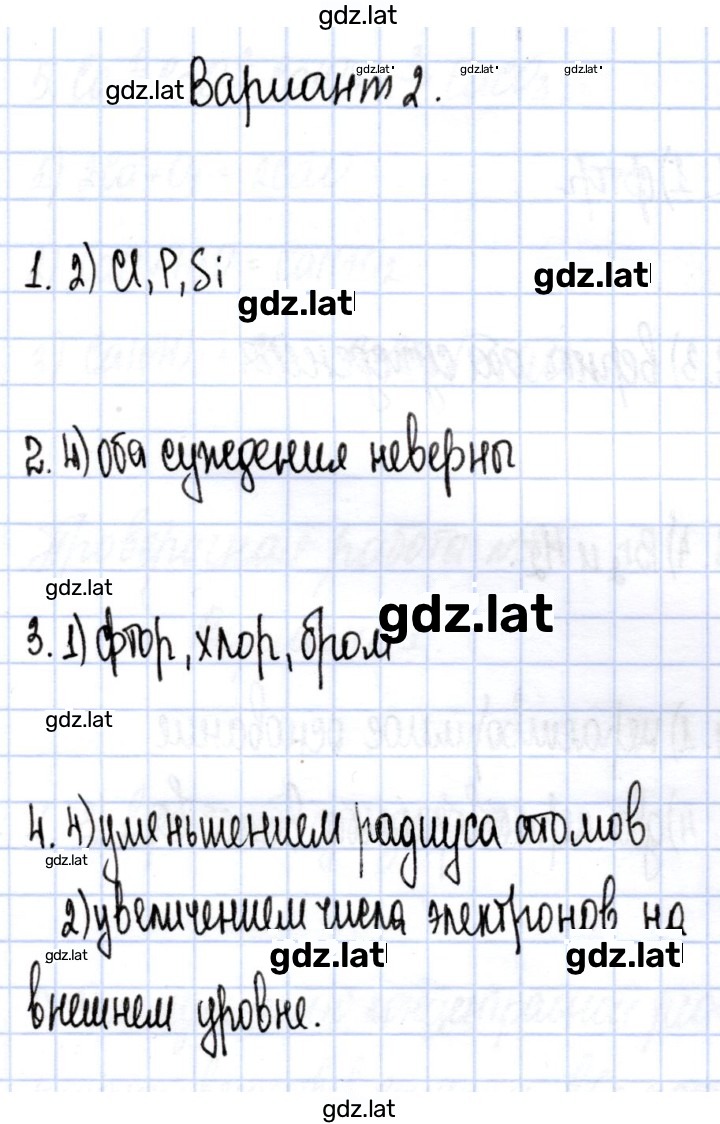 gdz.lat
gdz.lat Вариант 2. gdz.lat gdz.lat gdz.lat
1. 2) Cl, P, Si
gdz.lat
gdz.lat
2. 4) оба суждения неверны
gdz.lat
3. 1) фтор, хлор, бром
gdz.lat
gdz.lat
4. 4) уменьшением радиуса атомов
gdz.lat
2) увеличением числа электронов на
gdz.lat gdz.lat gdz.lat
внешнем уровне.
gdz.lat